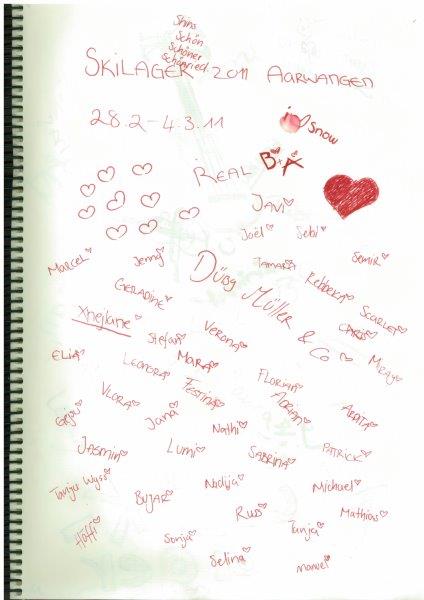 Shins
Schön
Schöner
Schönried
SKILAGER 2011 AARWANGEN
28.2-4.3.11
i Snow
REAL B+A
JAVI
Joël Sebi
Marcel Jenny TAMARA Semir
GERALDINE Düög Müller & Co REBBEKA SCARLET
Xhejlane Stefan VERONA CARLO
ELIA LEONORA MARA MIRAY
VLORA FESTINA FLORIAN ADRIAN ARDITA
Jana Nathi
JASMIN Lumi SABRINA PATRICK
Tanja Wyss BUJAR Nadija Michael
RUB Mathias
Höffi Sonja Tanja
Selina manuel